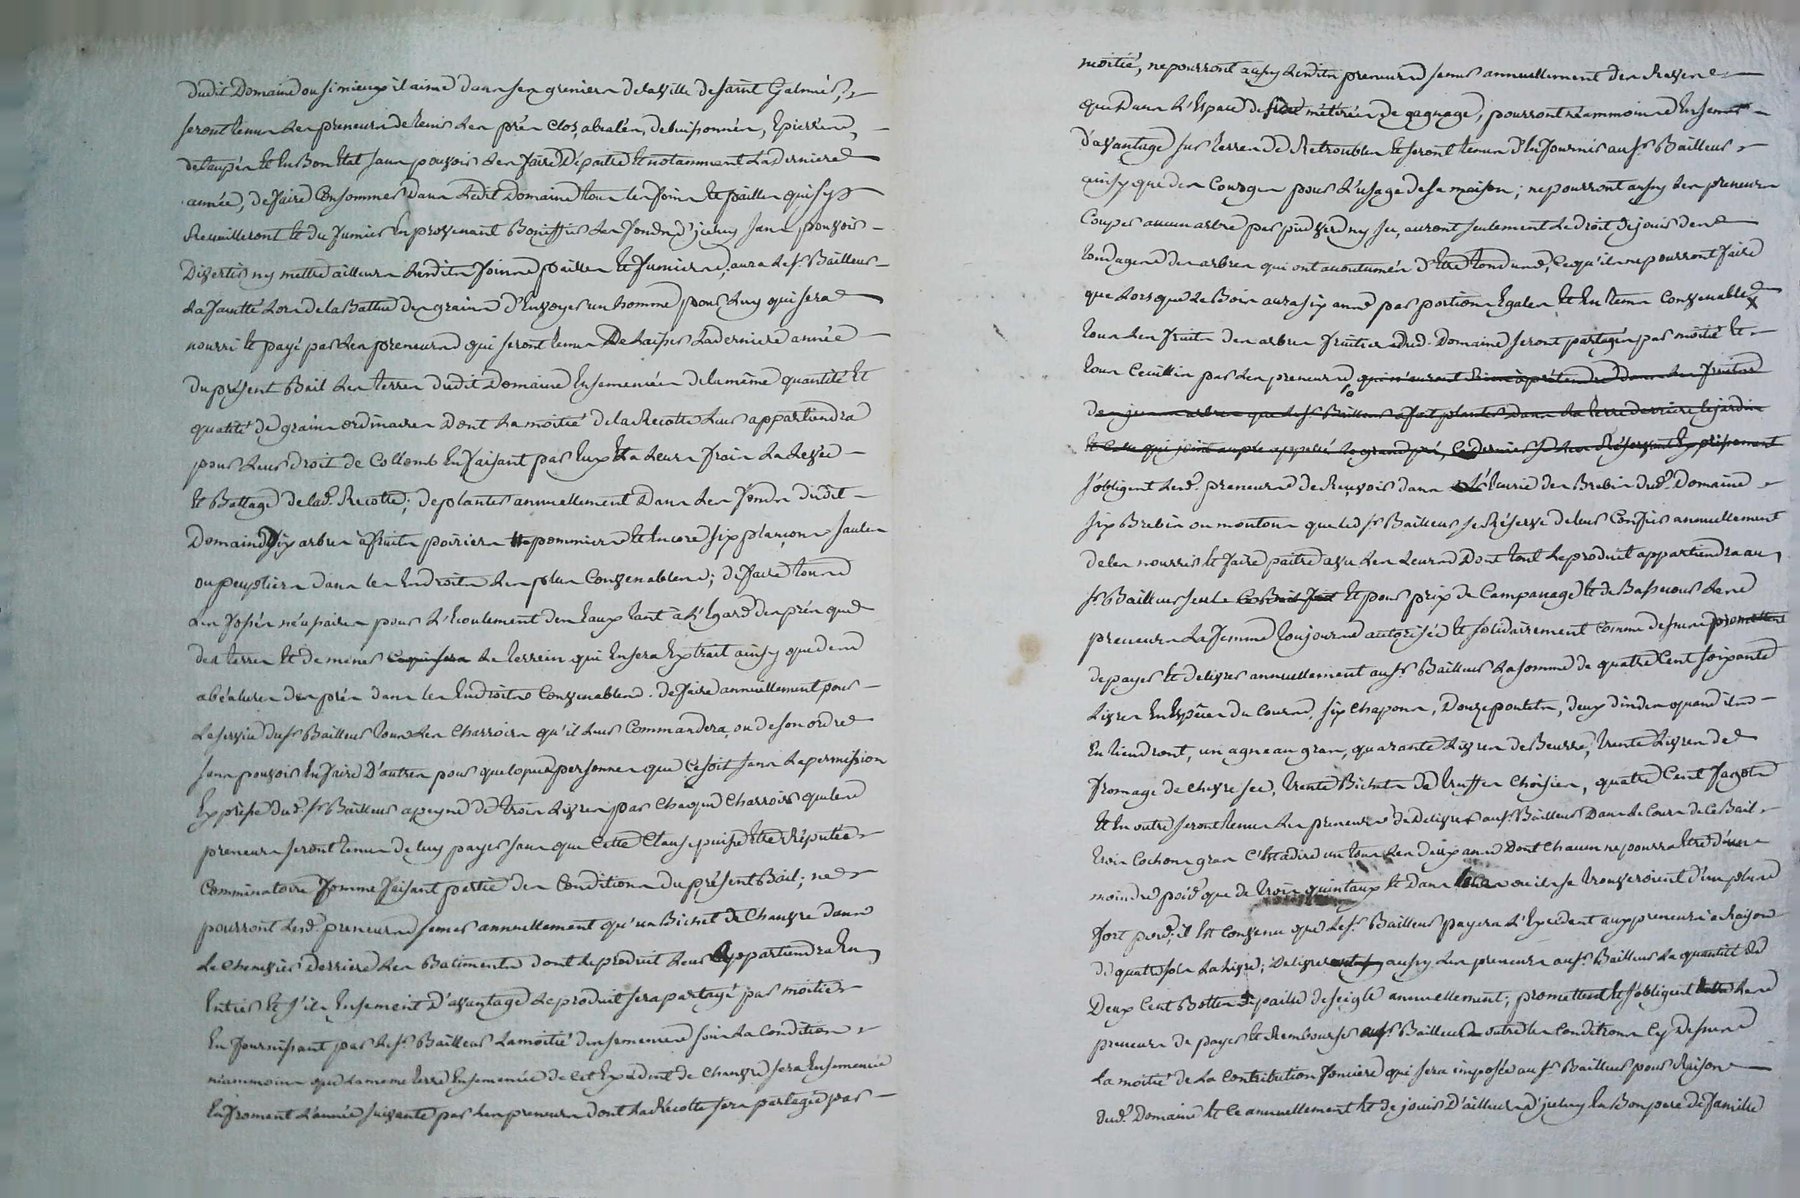 dudit Domaine ou si mieux il aime dans ses greniers de la ville de saint Galmier,
seront tenus les preneurs de tenir les prés clos, abéalés, debuissonnés, Epierrés,
detaupés et En Bon Etat sans pouvoir les faire Dépaitre et notamment La derniere
année, de faire Consommer dans Ledit Domaine tous les foins et pailles qui s'y
Recuilleront et du fumier En provenant Bonniffier les fonds d'jceluy sans pouvoir
Divertir ny mettre ailleurs Lesdits foins pailles et fumiers, aura Le sr. Bailleur
La faculté Lors de la Battue des grains d'Envoyer un homme pour Luy qui sera
nourri et payé par Les preneurs qui seront tenus De Laisser La derniere année
du présent Bail Les terres dudit Domaine Ensemencées de la même quantité Et
qualité de grains ordinaires Dont La moitié de la Recolte Leur appartiendra
pour Leur droit de Collomb En faisant par Eux Et a Leurs frais La Levée
Et Battage de lad. Recolte; de planter annuellement Dans Les fonds dudit
Domaine Dix arbres à fruits poiriers pommiers et Encore six plançons saules
ou peupliers dans les Endroits Les plus Convenables; de faire tous
Les fossés nécessaires pour L'Ecoulement des Eaux tant à L'Egard des prés que
des terres et de mener ce qui sera Le terrein qui En sera Extrait ainsy que des
abéalures des prés dans les Endroits Convenables. de faire annuellement pour
Le service du sr. Bailleur tous Les Charrois qu'il Leur Commandera, ou de son ordre
sans pouvoir En faire D'autres pour quelques personnes que Ce soit sans La permission
Expresse dud. sr. Bailleur a peyne de trois Livres par Chaque Charrois que les
preneurs seront tenus de luy payer sans que Cette Clause puisse Etre Réputée
Comminatoire Comme faisant partie des Conditions du présent Bail; ne
pourront Lesd. preneurs semer annuellement qu'un Bichet de Chanvre dans
Le Chenevier derriere Les Batiments dont Le produit Leur appartiendra En
Entier Et s'ils En sement D'avantage Le produit sera partagé par moitié
En fournissant par Le sr. Bailleur La moitié des semences sous La Condition
néammoins que La meme terre Ensemencée de Cet Excédent de Chanvre sera Ensemencée
En froment L'année suivante par Les preneurs dont La Récolte sera partagée par
moitié, ne pourront aussy Lesdits preneurs semer annuellement des Raves
que Dans L'Espace de métérées de gagnage, pourront néammoins En semer
d'avantage sur terres de Retroubles et seront tenus d'En fournir au sr. Bailleur
ainsy que des Courges pour L'usage de sa maison; ne pourront aussy Les preneurs
Couper aucun arbre par pied verd ny sec, auront seulement Le droit de jouir des
tondages des arbres qui ont accoutumés d'Etre tondus, Ce qu'ils ne pourront faire
que Lorsque Le Bois aura six ans par portions Egales Et En tems Convenable
tous Les fruits des arbres fruitiers dud. Domaine seront partagés par moitié Et
tous Ceuillis par Les preneurs, qui n'auront Rien à prétendre dans Les fruits
des jeunes arbres que Le sr. Bailleur a fait planter dans La terre derriere le jardin
et Celle qui joint au pré appelé Le grand pré, Ce dernier se Les Réservant Expressement
s'obligent Lesd. preneurs de Reçevoir dans L'Ecurie des Brebis dud. Domaine
six Brebis ou moutons que led sr. Bailleur se Réserve de leur Confier annuellement
de les nourrir Et faire paitre avec Les Leurs Dont tout Le produit appartiendra au
sr. Bailleur seul. Ce Bail fait Et pour prix de Campanage Et de Bassecour Les
preneurs La femme toujours autorisée Et solidairement Comme dessus promettent
de payer Et delivrer annuellement au sr. Bailleur La somme de quatre Cent soixante
Livres En Espèces du Cours, six Chapons, Douze poulets, deux dindes quand ils
En tiendront, un agneau gras, quarante Livres de Beurre, trente Livres de
fromage de chevre sec, trente Bichets de truffes Choisies, quatre Cent fagots
Et En outre seront tenus Les preneurs de Delivrer au sr. Bailleur Dans Le Cours de Ce Bail
trois Cochons gras C'Est a dire un tous Les deux ans Dont Chacun ne pourra Etre d'un
moindre poid que de trois quintaux Et Dans ou il se trouveroient d'un plus
fort poid, il Est Convenu que Le sr. Bailleur payera L'Excédent aux preneurs a Raison
de quatre sols La Livre; Delivreront aussy Les preneurs au sr. Bailleur La quantité de
Deux Cent Bottes de paille de seigle annuellement; promettent Et s'obligent Les
preneurs de payer Et Rembourser au sr. Bailleur outre les Conditions Cy Dessus
La moitié de La Contribution fonciere qui sera imposée au sr. Bailleur pour Raison
dud. Domaine Et Ce annuellement Et de jouir D'ailleurs d'jceluy En Bon pere de famille